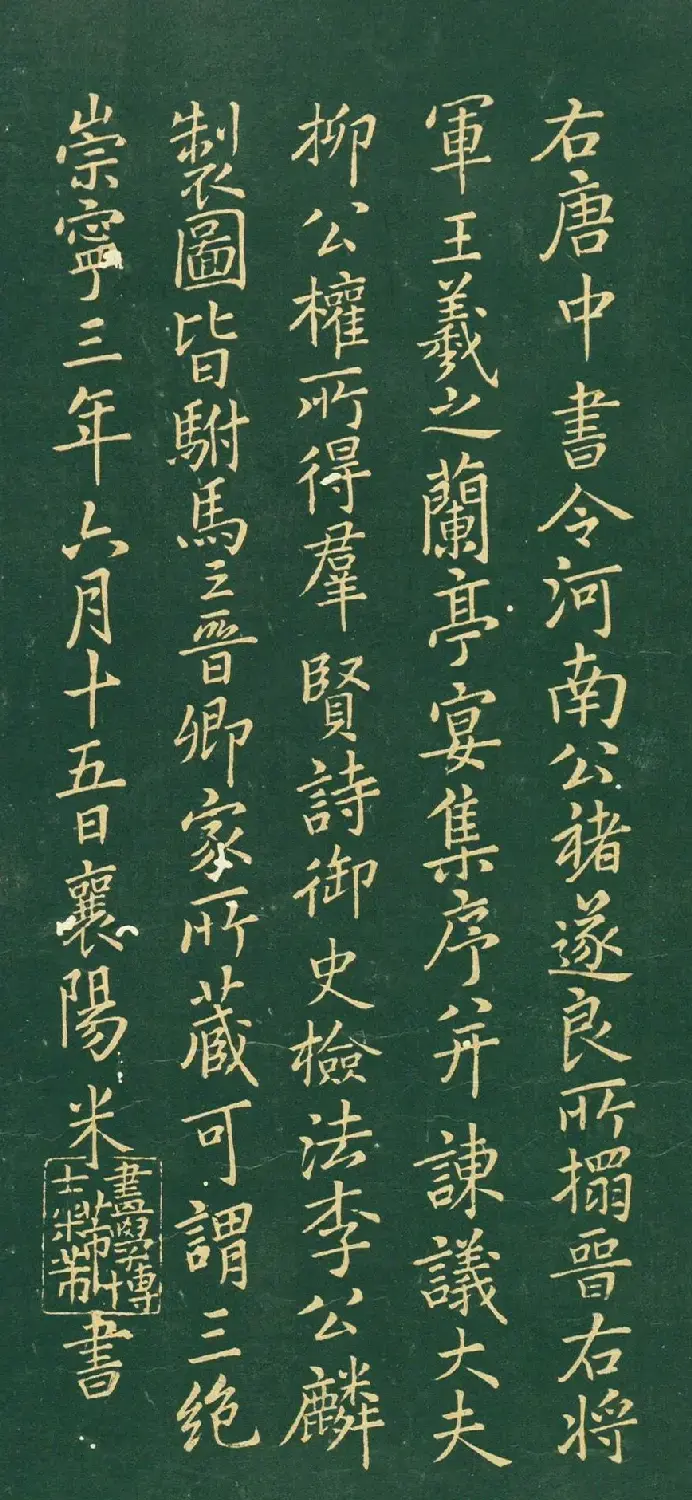 右唐中書令河南公褚遂良所搨晉右将
軍王羲之蘭亭宴集序并諫議大夫
柳公權所得羣賢詩御史檢法李公麟
製圖皆駙馬王晉卿家所藏可謂三絶
崇寧三年六月十五日襄陽米
書學博
士米芾
書